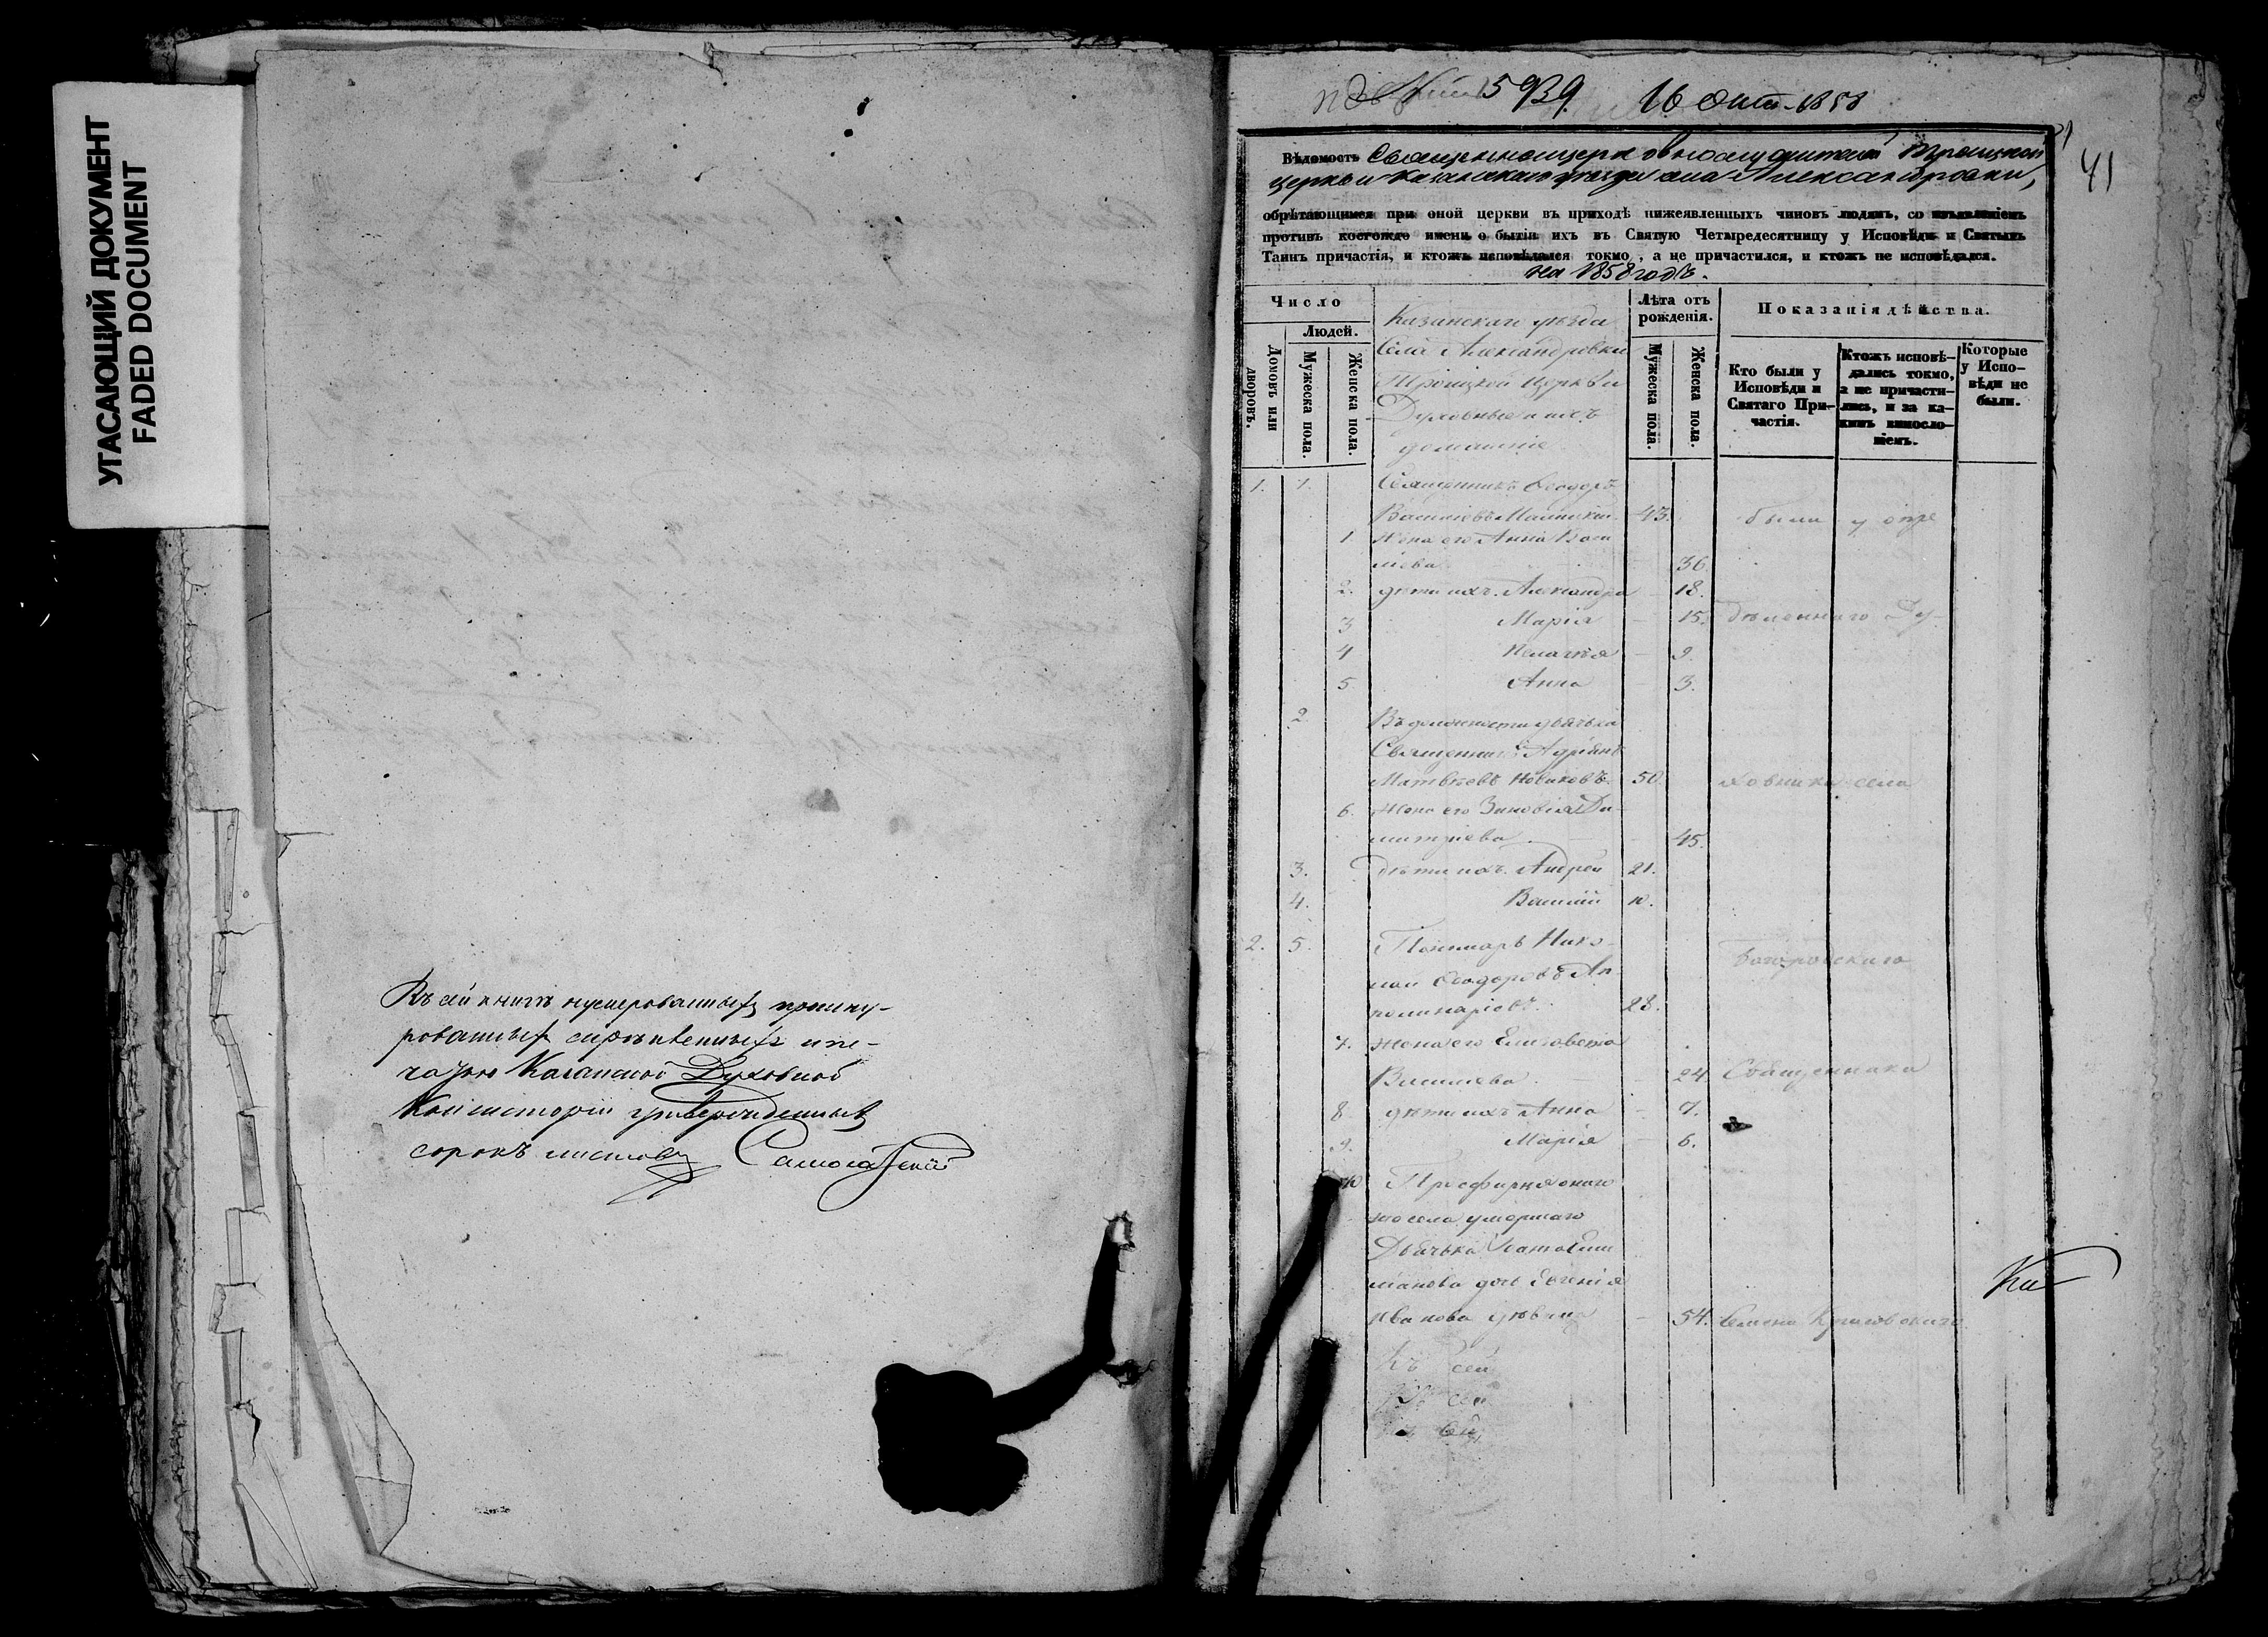 УГАСАЮЩИЙ ДОКУМЕНТ
FADED DOCUMENT
Въ сей книгѣ нумерованныхъ прошну-
рованныхъ скрѣпленныхъ и пе-
чатью Казанской Духовной
Консисторіи утвержденныхъ
сорокъ листовъ
5939. 16 Окт. 1858
41
Вѣдомость Священноцерковнослужителей Троицкой
церкви Казанскаго уѣзда села Александровки,
обрѣтающимся при оной церкви въ приходѣ нижеявленныхъ чиновъ людямъ, со изъявленіемъ
противъ коегождо имени о бытіи ихъ въ Святую Четыредесятницу у Исповѣди и Святыхъ
Таинъ причастія, и ктожъ исповѣдался токмо, а не причастился, и ктожъ не исповѣдался.
на 1858 годъ.
Число
Людей.
Домовъ или дворовъ.
Мужеска пола.
Женска пола.
Казанскаго уѣзда
Села Александровки
Троицкой церкви
Духовные и ихъ
домашніе
Лѣта отъ рожденія.
Мужеска пола.
Женска пола.
Показанія дѣйства.
Кто были у Исповѣди и Святаго При-частія.
Ктожъ исповѣ-дались токмо, а не причасти-лись, и за ка-кимъ винословіемъ.
Которые у Испо-вѣди не были.
1. 1. Священникъ Ѳеодоръ
Васильевъ 43. были у опре
1. Жена его Анна Васи
льева 36.
2. дѣти ихъ. Александра 18.
3 Марія 15. дѣленнаго Ду-
4 Пелагія 9.
5 Анна 3.
2 Въ должности дьячка
Священникъ Адріанъ
Матвѣевъ Новиковъ 50 ховника села
6. Жена его Зиновія Ди
митріева 45.
3. Дѣти ихъ. Андрей 21.
4. Василій 10.
2. 5. Пономарь Нико-
лай Ѳеодоровъ Ап Богородскаго
полинаріевъ. 28.
7. Жена его Елизавета
Васильева. 24 Священника
8 дѣти ихъ Анна 7.
9. Марія 6.
10 Просфирня онаго
же села умершаго
Дьячка Ивана
дочь Евгенія
Иванова дѣвица 54. Симона
Къ сей